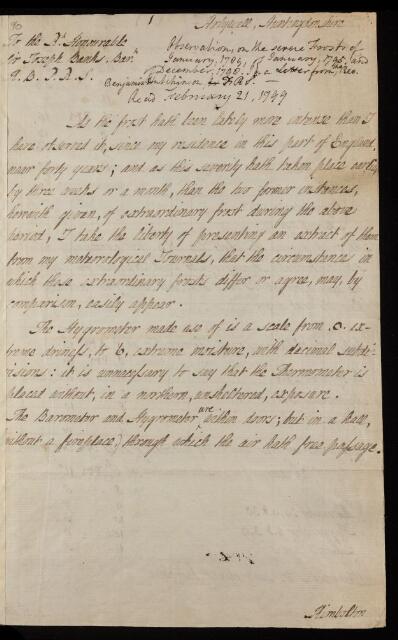 90
1
Huntingdonshire
To the Rt. Honourable
Sr. Joseph Banks. Bart.
P. B. P. R. S.
Observations on the severe Frosts of
January, 1784, of January, 1795, and
of December, 1798. In a Letter from the Rev.
Benjamin Hutchinson F.R.S.
Read February 21, 1799
As the frost hath been lately more intense than I
have observed it, since my residence in this part of England
near forty years; and as this severity hath taken place earlier,
by three weeks or a month, than the two former instances,
herewith given, of extraordinary frost during the above
period, I take the liberty of presenting an extract of them
from my meteorological Journals, that the circumstances in
which these extraordinary frosts differ or agree, may, by
comparison, easily appear.
The Hygrometer made use of is a scale from, 0. ex-
treme driness, to 6, extreme moisture, with decimal subdi-
visions: it is unnecessary to say that the Thermometer is
placed without, in a northern, unsheltered, exposure.
The Barometer and Hygrometer are within doors; but in a hall,
without a fireplace, through which the air hath free passage.
Kimbolton